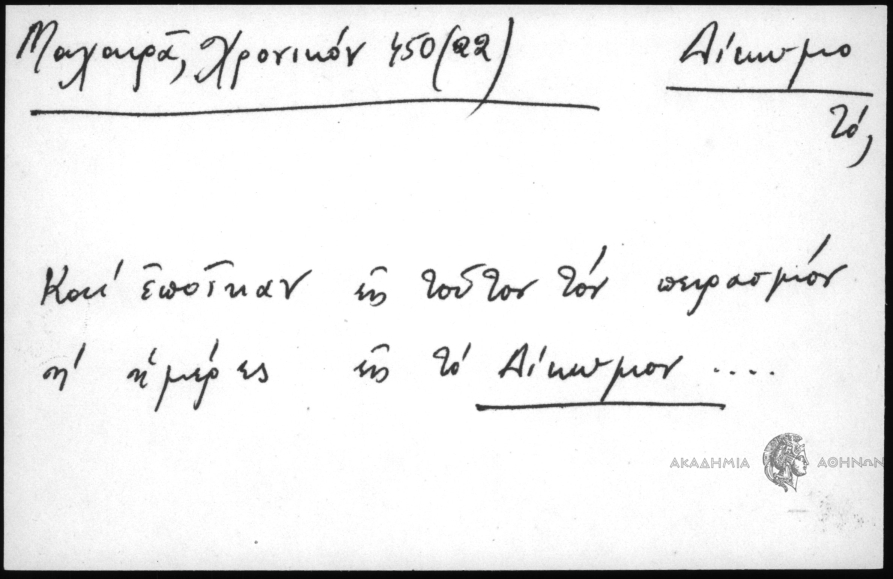 Μαχαιρᾶ, Χρονικόν 450(22)
Λίκωμο
τό,
Καί ἐποῖκαν εἰς τοῦτον τόν πειρασμόν
η' ἡμέρες εἰς τό Λίκωμον ....
ΑΚΑΔΗΜΙΑ ΑΘΗΝΩΝ